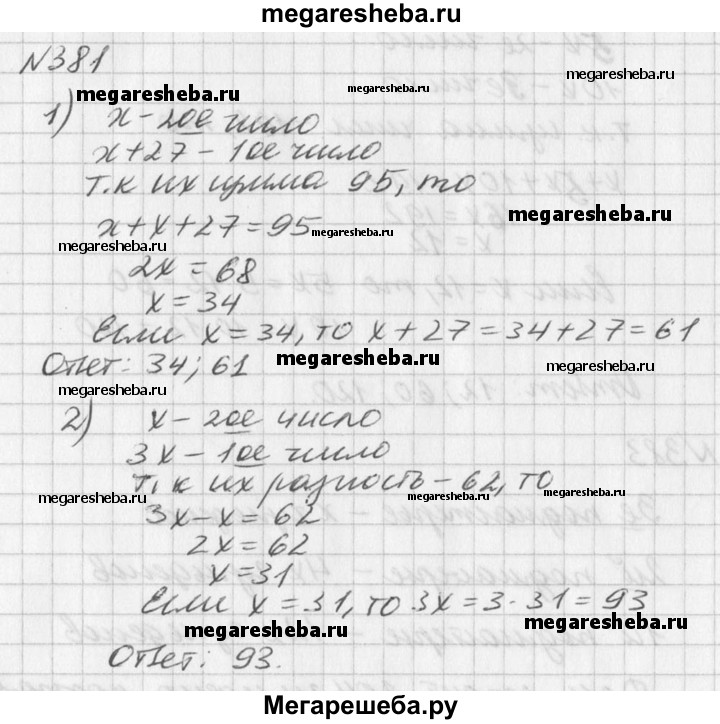 megaresheba.ru
N381
megaresheba.ru
megaresheba.ru
1) x - 2ое число
megaresheba.ru
x + 27 - 1ое число
т.к их сумма 95, то
megaresheba.ru
x + x + 27 = 95
megaresheba.ru
megaresheba.ru
2x = 68
x = 34
Если x = 34, то x + 27 = 34 + 27 = 61
megaresheba.ru
Ответ: 34; 61
megaresheba.ru
2) x - 2ое число
3x - 1ое число
т.к их разность - 62, то
megaresheba.ru
megaresheba.ru
megaresheba.ru
3x - x = 62
2x = 62
x = 31
Если x = 31, то 3x = 3 · 31 = 93
megaresheba.ru
megaresheba.ru
Ответ: 93.
Мегарешеба.ру